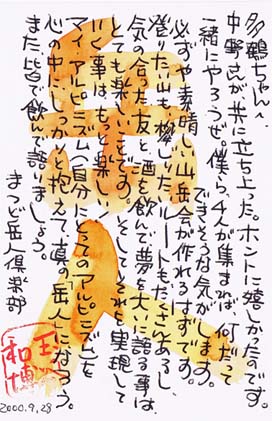 多鶴ちゃんへ
中野さんが共に立ち上った。ホントに嬉しかったのです。
一緒にやろうぜ。僕ら、4人が集まれば、何だって
できそうな気がします。
必ずや素晴しい山岳会が作れるはずです。
登りたい山も、検したいルートもたくさんあるし、
気の合った友と、酒を飲んで夢を大いに語る事は、
とても楽しいことです。そして、それを実現して
いく事は、もっと楽しい!
マイ・アルピニズム(自分にとってのアルピニズム)を
心の中にしっかりと抱えて、真の岳人になろう。
また皆で飲んで語りましょう。
まつど岳人倶楽部
玉
和博
2000.9.28
岳人